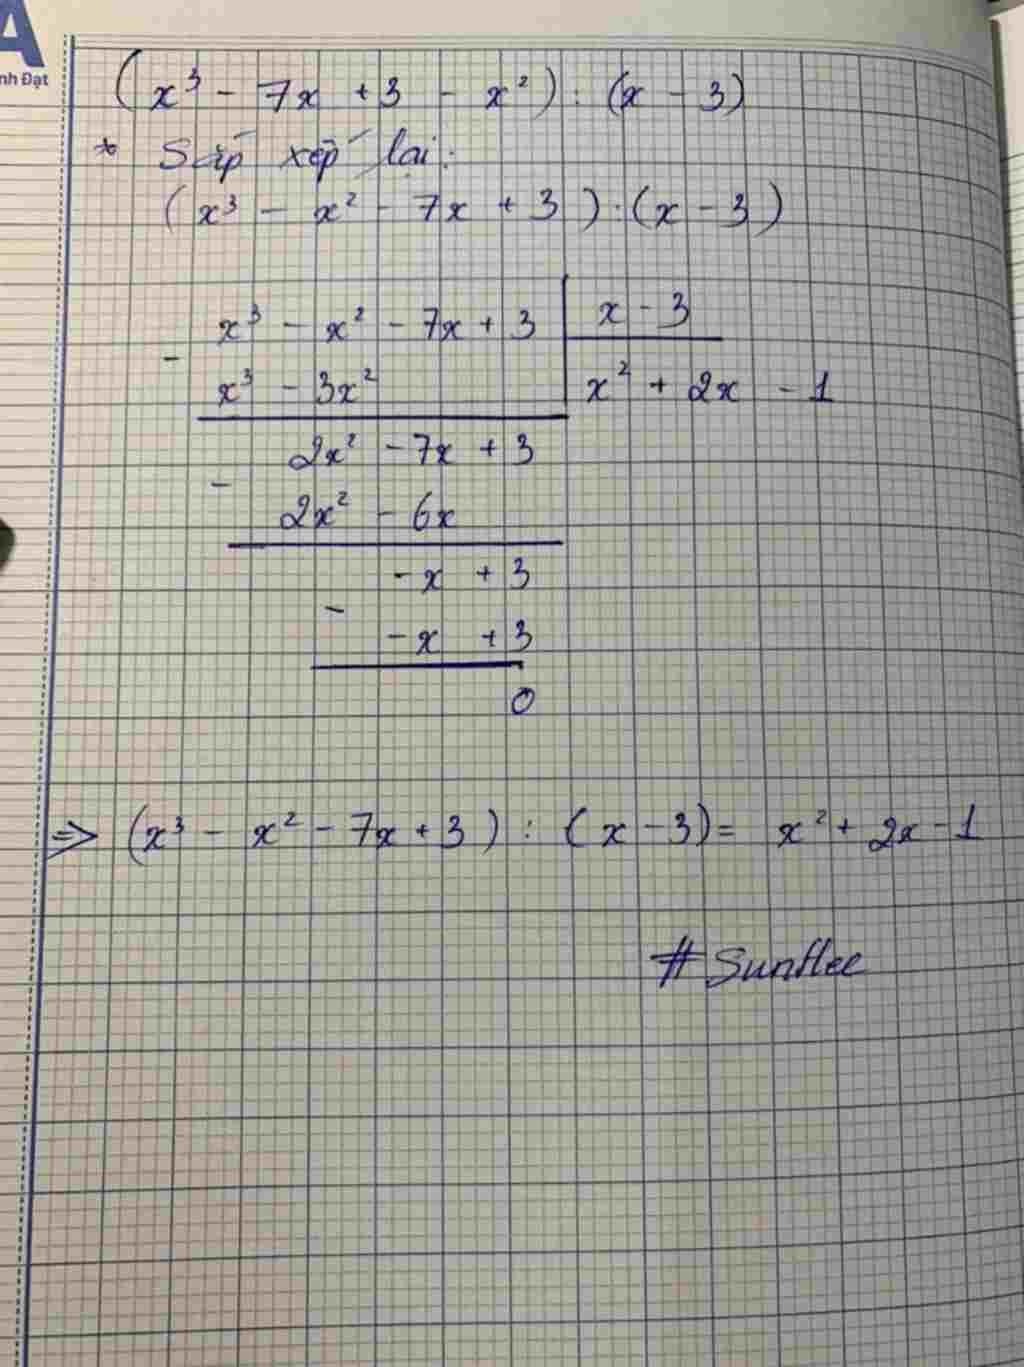 A
nh Đạt
(x³ - 7x + 3 - x²) : (x - 3)
* Sắp xếp lại:
(x³ - x² - 7x + 3) : (x - 3)
x³ - x² - 7x + 3 | x - 3
-
x³ - 3x² | x² + 2x - 1
2x² - 7x + 3
-
2x² - 6x
-x + 3
-
-x + 3
0
=> (x³ - x² - 7x + 3) : (x - 3) = x² + 2x - 1